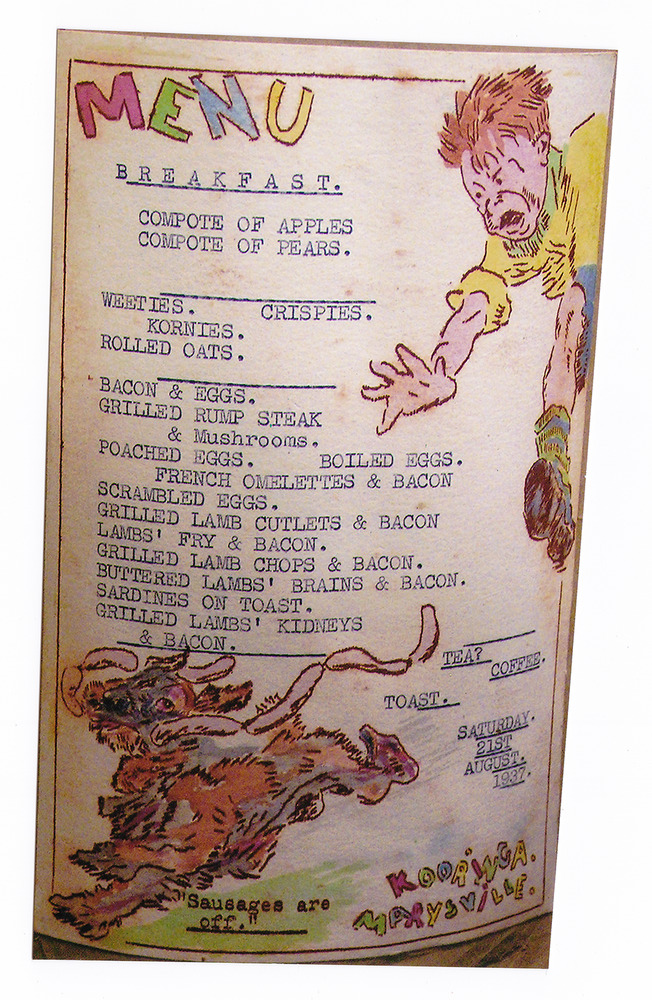 MENU
BREAKFAST.
COMPOTE OF APPLES
COMPOTE OF PEARS.
WEETIES. CRISPIES.
KORNIES.
ROLLED OATS.
BACON & EGGS.
GRILLED RUMP STEAK
& Mushrooms.
POACHED EGGS. BOILED EGGS.
FRENCH OMELETTES & BACON
SCRAMBLED EGGS.
GRILLED LAMB CUTLETS & BACON
LAMBS' FRY & BACON.
GRILLED LAMB CHOPS & BACON.
BUTTERED LAMBS' BRAINS & BACON.
SARDINES ON TOAST.
GRILLED LAMBS' KIDNEYS
& BACON.
TEA?
COFFEE.
TOAST.
SATURDAY.
21ST
AUGUST.
1937.
KOORINGA.
MARYSVILLE.
"Sausages are
off."